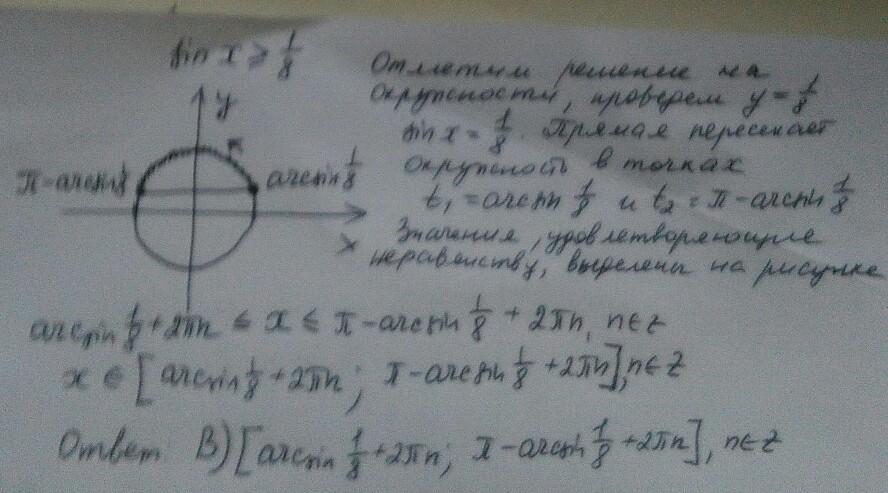 sin x ⩾ 1/8
y
π-arcsin 1/8
arcsin 1/8
x
Отметим решение на
окружности, проведем y = 1/8
sin x = 1/8. Прямая пересекает
окружность в точках
t₁ = arcsin 1/8 и t₂ = π - arcsin 1/8
Значения, удовлетворяющие
неравенству, выделены на рисунке
arcsin 1/8 + 2πn ≤ x ≤ π - arcsin 1/8 + 2πn, n∈z
x ∈ [arcsin 1/8 + 2πn; π - arcsin 1/8 + 2πn], n∈Z
Ответ: В) [arcsin 1/8 + 2πn; π - arcsin 1/8 + 2πn], n∈z